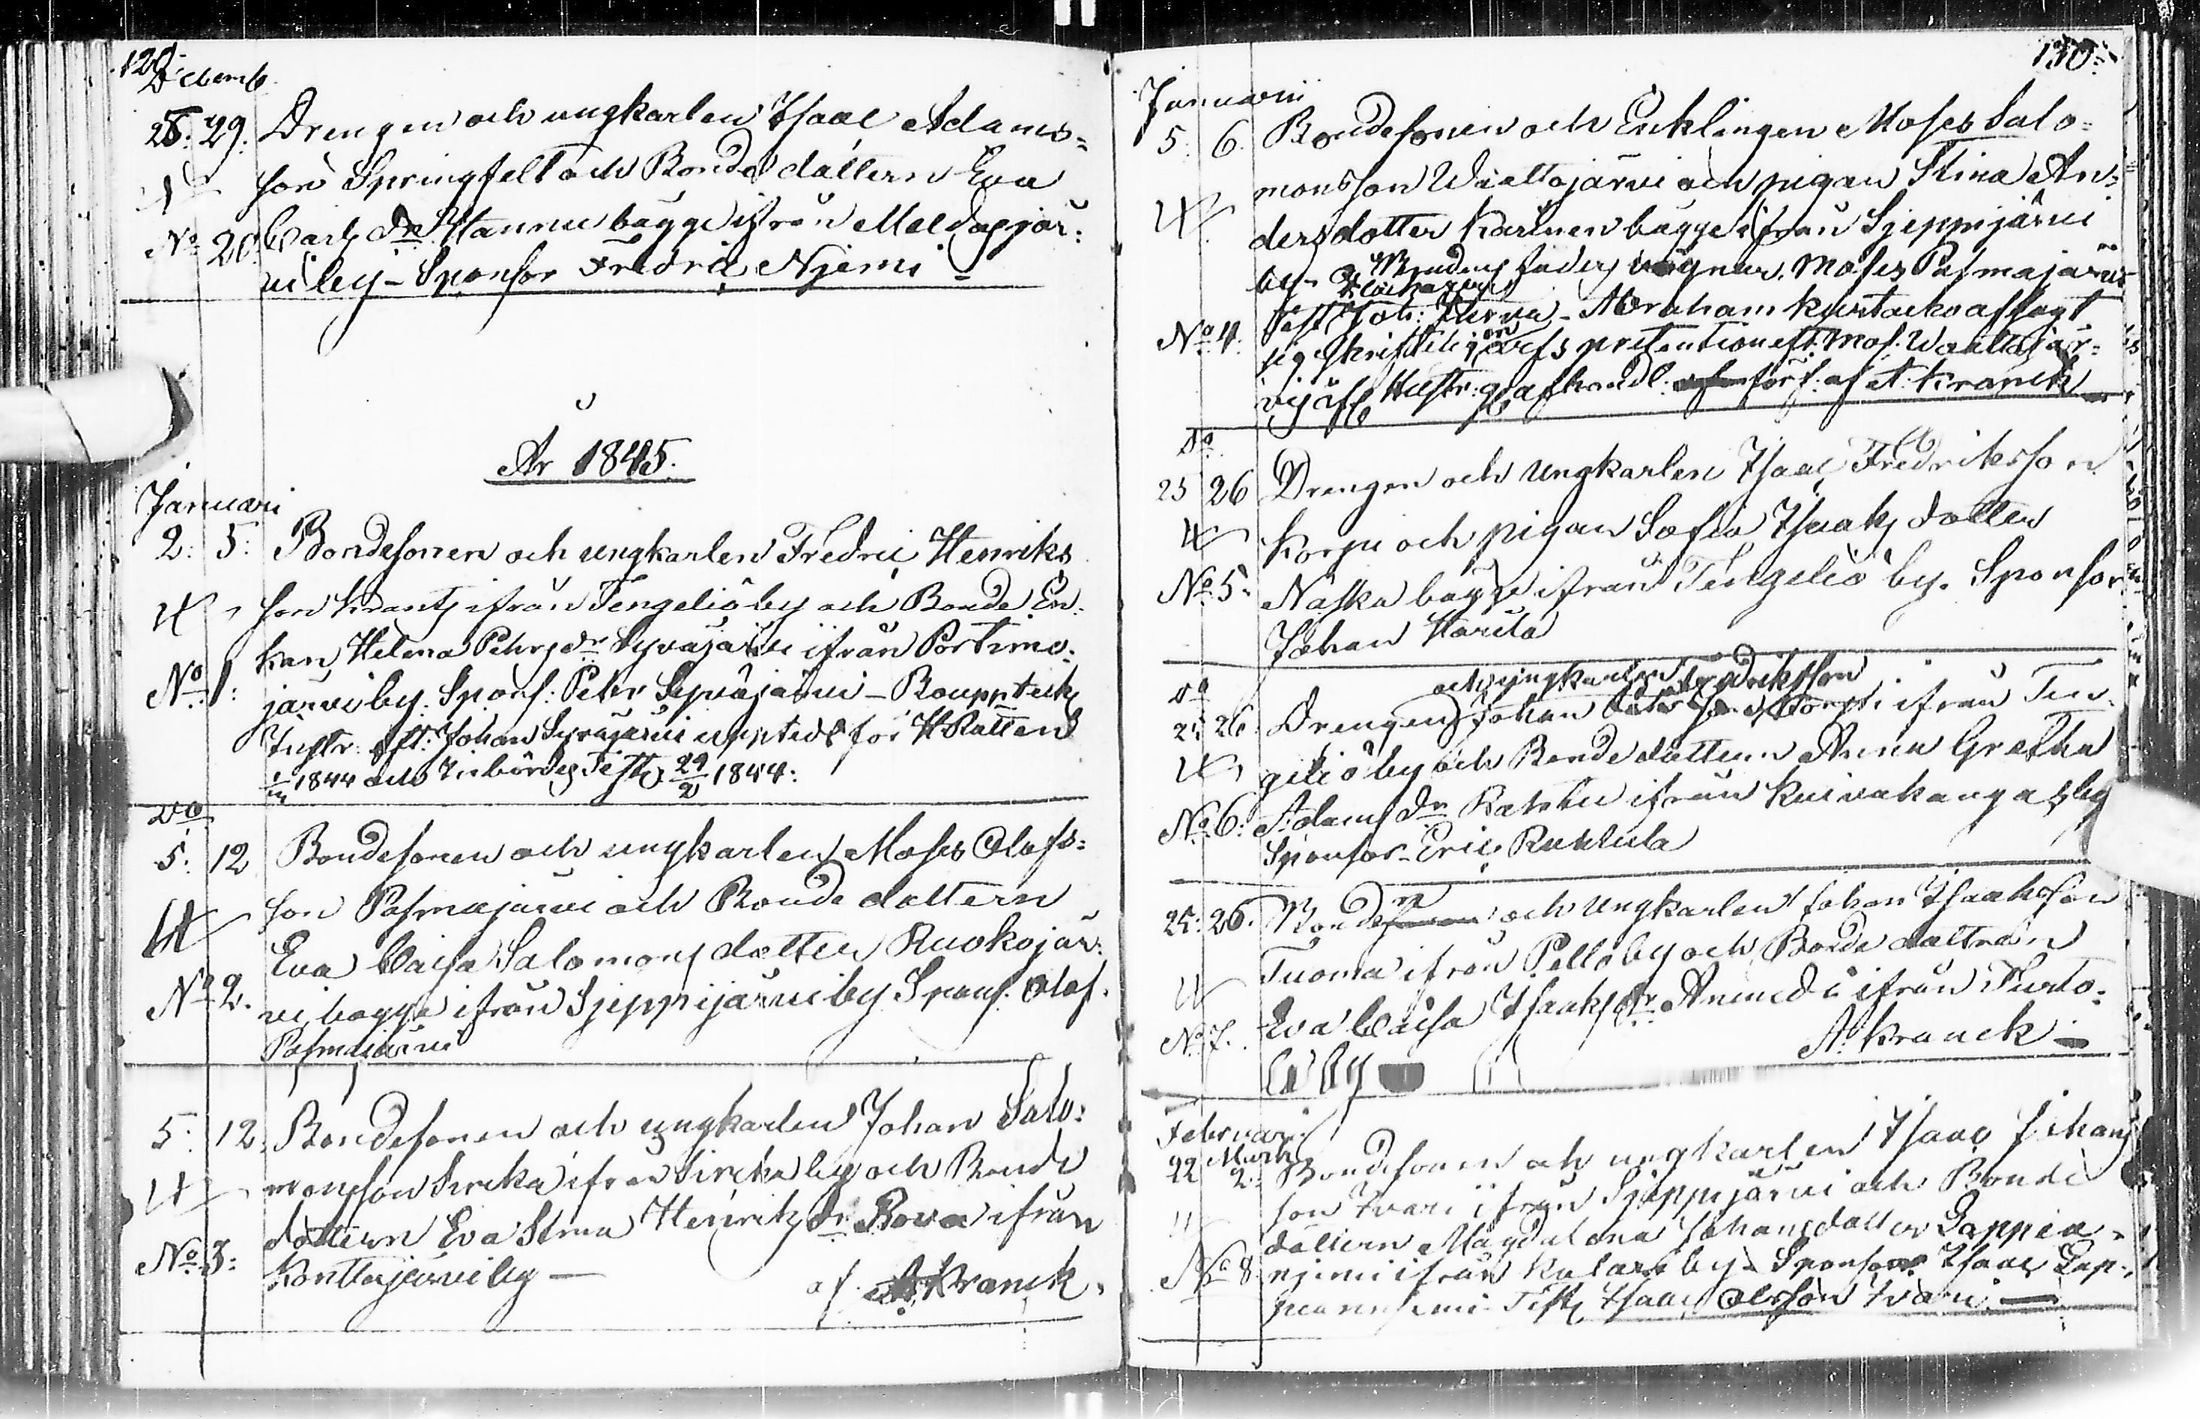 129.
Decemb.
26. 29. Drengen och ungkarlen Isaac Adams=
son Springfelt och Bonde dottern Eva
No 20. Carls dr Hannu bägge ifrån Meldosjär=
vi by - Sponsor Fredric Njemi -
År 1845.
Januari
2. 5. Bondesonen och ungkarlen Fredric Henriks
son Krantz ifrån Tengeliö by och Bonde En=
No 1. kan Helena Pehrs dr Syväjärvi ifrån Portimo=
järvi by. Spons: Petter Syväjärvi - Boupptekn
Instr: eft: Johan Syväjärvi
1844 och Inbördes Test 29/2 1844.
do
5. 12 Bondesonen och ungkarlen Moses Olofs=
son Pasmajärvi och Bonde dottern
Eva Caisa Salomons dotter Ruokojär=
No 2. vi bägge ifrån Sjeppijärvi by Spons. Olof.
Pasmajärvi
5. 12. Bondesonen och ungkarlen Johan Salo=
monsson Sircka ifrån Sircka by och Bonde
dottern Eva Stina Henriks dr Rova ifrån
No 3. Konttajärvi by — af A Kranck.
130.
Januarii
5. 6. Bondesonen och Enklingen Moses Salo=
monsson Waattojärvi och pigan Stina An=
ders dotter Karinen bägge ifrån Sjeppijärvi
by - Brudens fader Moses Pasmajärvi
No 4. Joh: - Abraham afsagt
sig skriftelig arfs pretention eft. Mos. Waattojär=
vi afhandl. förf: af A. Kranck
do
25 26 Drengen och ungkarlen Isaac Fredriksson
Korpi och pigan Sofia Isaaks dotter
No 5. Naska bägge ifrån Tengeliö by. Sponsor
Johan Harila
do och ungkarlen Fredriksson
25 26. Drengen Johan Korpi ifrån Ten=
geliö by och Bonde dottern Anna Gretha
No 6. Adams dr ifrån Kuivakangas by
Sponsor Eric Ruktula
25. 26. Bonden och Ungkarlen Johan Isaaksson
Tuoma ifrån Pello by och Bonde dottren
No 7. Eva Caisa Isaaks dr Annedi ifrån Turto=
la by A. Kranck
Februari
22 Mars 2. Bondesonen och ungkarlen Isaac Johans
son Ivari ifrån Sjeppijärvi och Bonde
dottern Magdalena Johansdotter Lappea=
No 8 njemi ifrån Kolari by - Sponsor Isaac Lap=
peannjemi - Test Isaac Olsson Ivari —